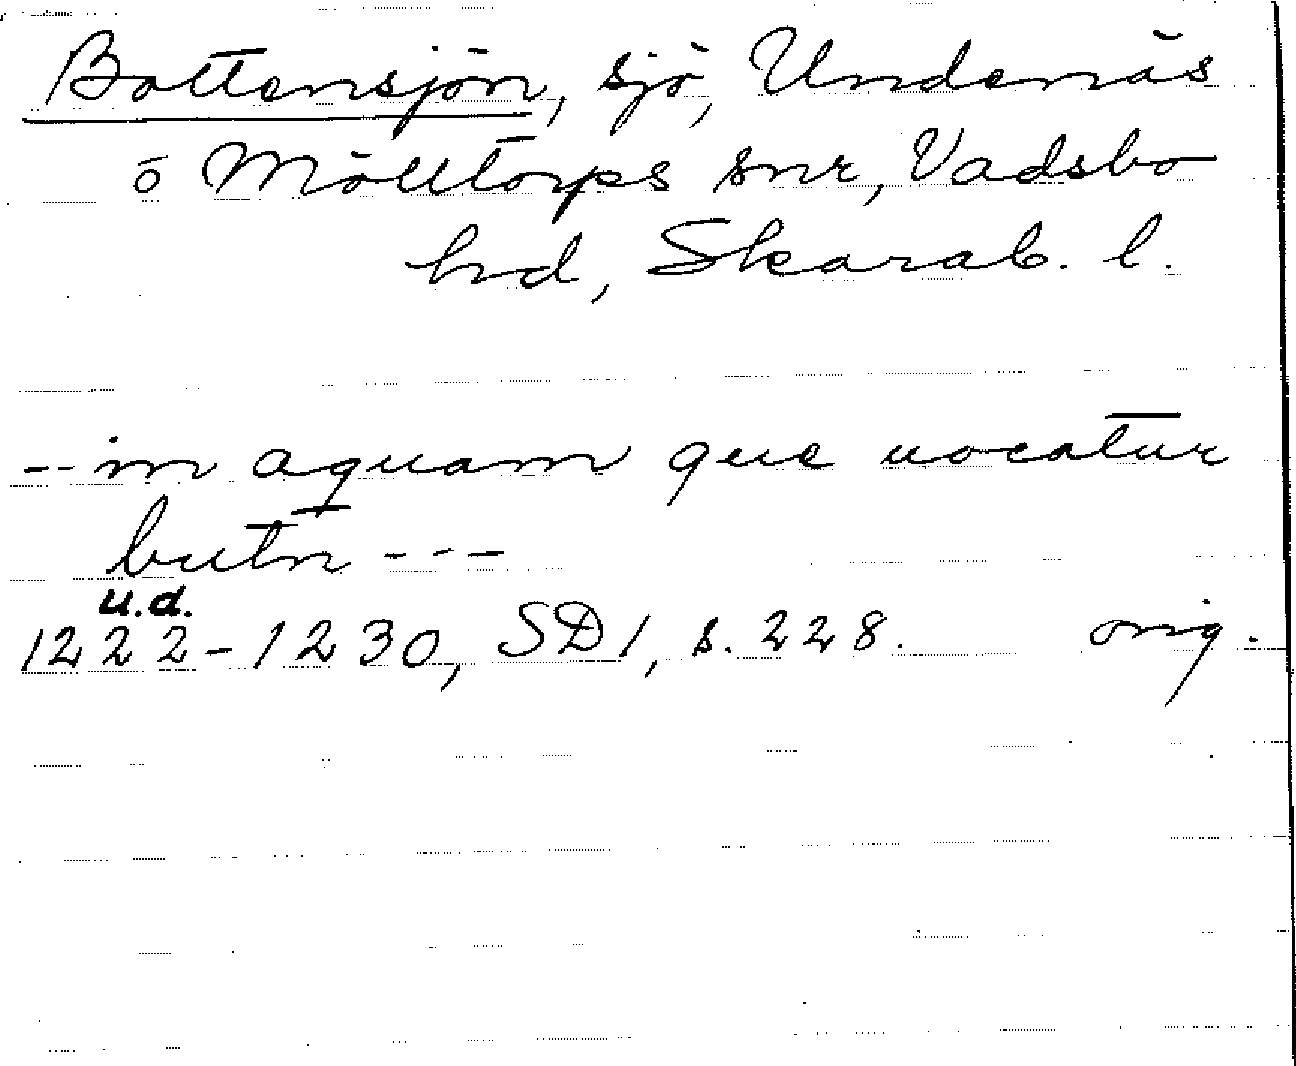 Bottensjön, sjö, Undenäs
o Mölltorps snr, Vadsbo
hrd, Skarab. l.
-- in aquam que uocatur
butn ---
u.d.
1222-1230, SD1, s. 228. orig.